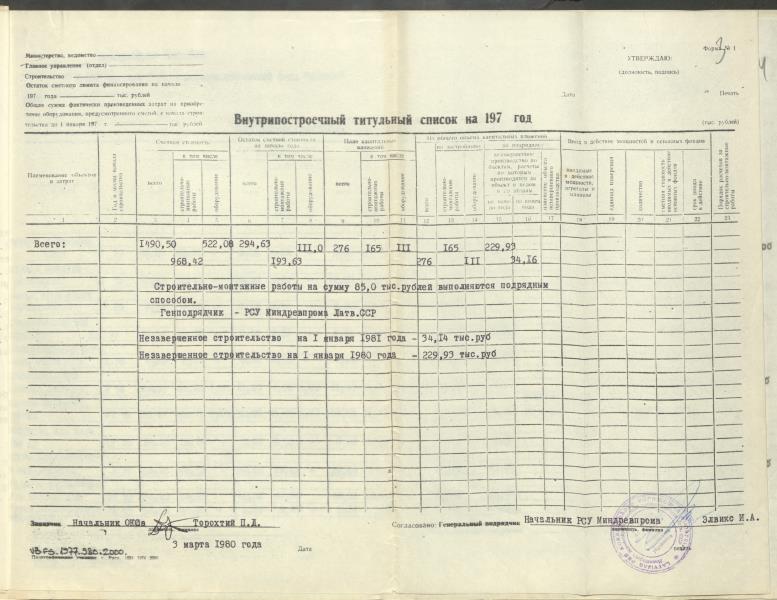 Форма № 1
3
4
Министерство, ведомство
Главное управление (отдел)
Строительство
Остаток сметного лимита финансирования на начало
197 года тыс. рублей
Общая сумма фактически произведенных затрат на приобре-
тение оборудования, предусмотренного сметой, с начала строи-
тельства до 1 января 197 г. тыс. рублей
УТВЕРЖДАЮ:
(должность, подпись)
Дата Печать
Внутрипостроечный титульный список на 197 год
(тыс. рублей)
Наименование объектов и затрат
Сметная стоимость
Остаток сметной стоимости на начало года
План капитальных вложений
Из общего объема капитальных вложений
Ввод в действие мощностей и основных фондов
в том числе
всего
строительно-монтажные работы
оборудование
по подрядным
единица измерения
количество
срок ввода в действие
1 2 3 4 5 6 7 8 9 10 11 12 13 14 15 16 17 18 19 20 21 22 23
Всего: 1490,50 522,08 294,63 III,0 276 I65 III I65 229,93
968,42 I93,63 276 III 34,I6
Строительно-монтажные работы на сумму 85,0 тыс.рублей выполняются подрядным
способом.
Генподрядчик - РСУ Миндревпрома Латв.ССР
Незавершенное строительство на I января 1981 года - 34,14 тыс.руб
Незавершенное строительство на I января 1980 года - 229,93 тыс.руб
Заказчик Начальник ОКСа Торохтий П.Д.
Согласовано: Генеральный подрядчик Начальник РСУ Миндревпрома Элвикс И.А.
3 марта 1980 года Дата
печать